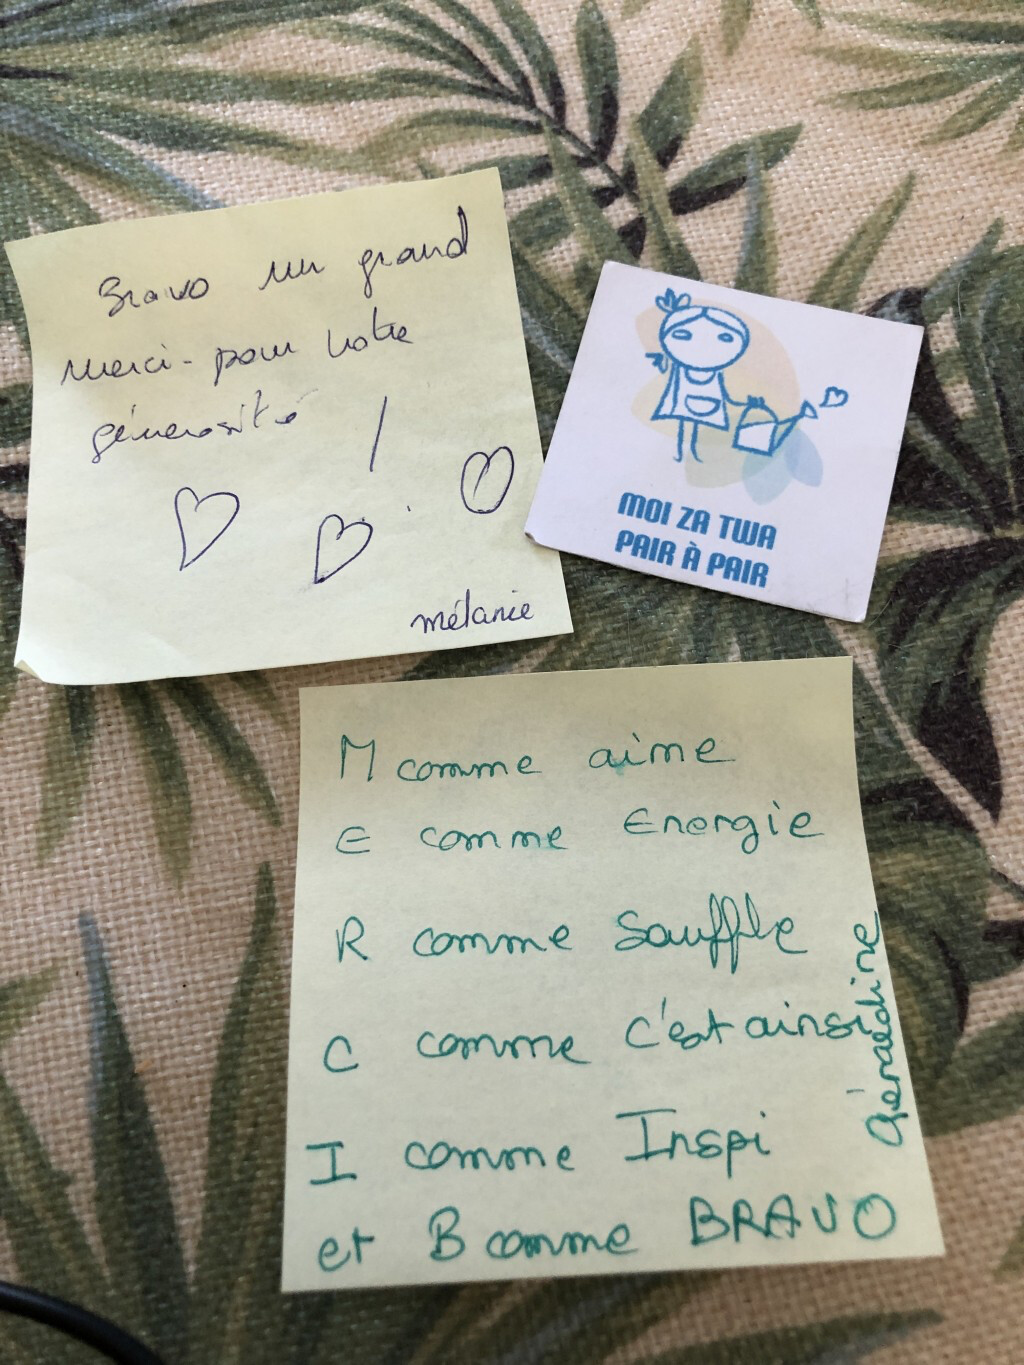 Bravo un grand
merci - pour votre
générosité !
mélanie
MOI ZA TWA
PAIR À PAIR
M comme aime
E comme Energie
R comme Souffle
C comme c'est ainsi
I comme Inspi
et B comme BRAVO
Géraldine